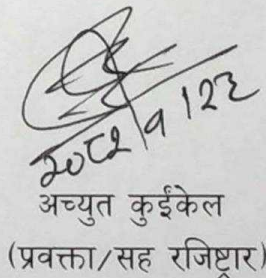 २०८२/१/२३
अच्युत कुईंकेल
(प्रवक्ता/सह रजिष्ट्रार)